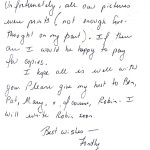 Unfortunately, all our pictures
were prints (not enough fore-
thought on my part). If there
are I would be happy to pay
for copies.
I hope all is well with
you. Please give my best to Ben,
Pat, Mary, &, of course, Robin. I
will write Robin soon.
Best wishes —